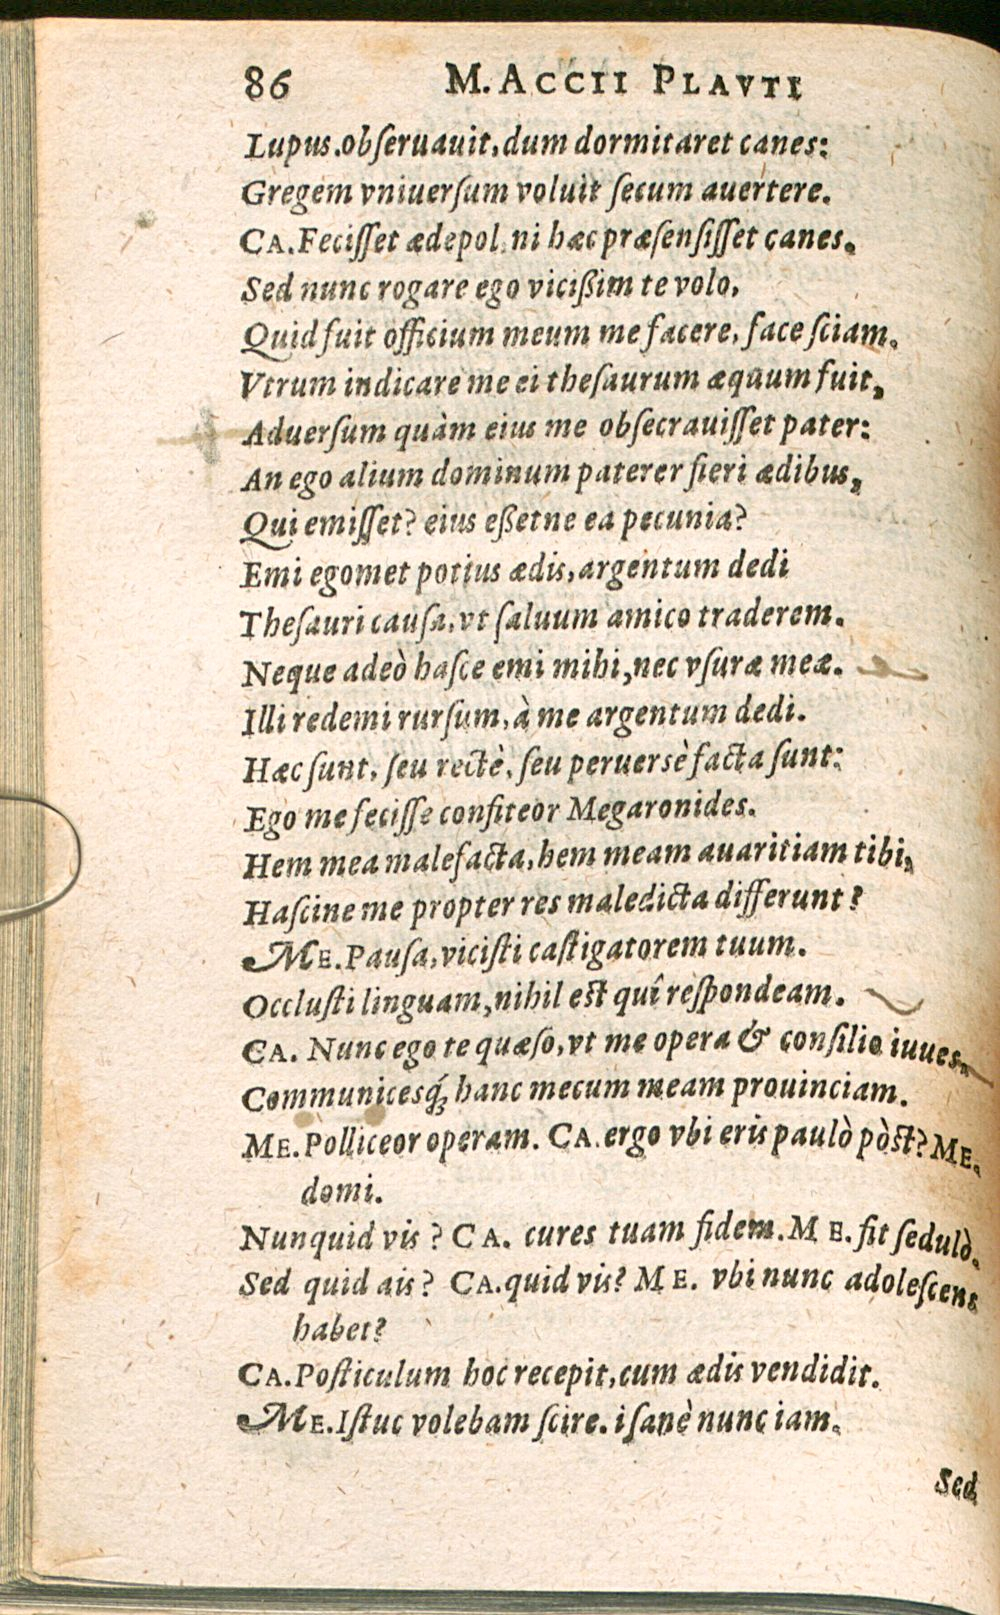 86 M. ACCII PLAVTI
Lupus.obſeruauit,dum dormitaret canes:
Gregem vniuerſum voluit ſecum auertere.
CA.Feciſſet ædepol, ni hæc præſenſiſſet canes.
Sed nunc rogare ego vicißim te volo,
Quid fuit officium meum me facere, face ſciam.
Vtrum indicare me ei theſaurum æquum fuit,
Aduerſum quàm eius me obſecrauiſſet pater:
An ego alium dominum paterer fieri ædibus,
Qui emiſſet? eius eßetne ea pecunia?
Emi egomet potius ædis,argentum dedi
Theſauri cauſa,vt ſaluum amico traderem.
Neque adeò haſce emi mihi,nec vſuræ meæ.
Illi redemi rurſum,à me argentum dedi.
Hæc ſunt, ſeu rectè, ſeu peruersè facta ſunt:
Ego me feciſſe confiteor Megaronides.
Hem mea malefacta,hem meam auaritiam tibi,
Haſcine me propter res maledicta differunt?
ME.Pauſa,viciſti caſtigatorem tuum.
Occluſti linguam,nihil eſt quî reſpondeam.
CA. Nunc ego te quæſo,vt me opera & conſilio iuues,
Communicesq́; hanc mecum meam prouinciam.
ME.Polliceor operam. CA.ergo vbi eris paulò pòſt? ME.
domi.
Nunquid vis? CA. cures tuam fidem.ME.fit ſedulò.
Sed quid ais? CA.quid vis? ME. vbi nunc adoleſcens
habet?
CA.Poſticulum hoc recepit,cum ædis vendidit.
ME.Iſtuc volebam ſcire. i ſanè nunc iam.
Sed